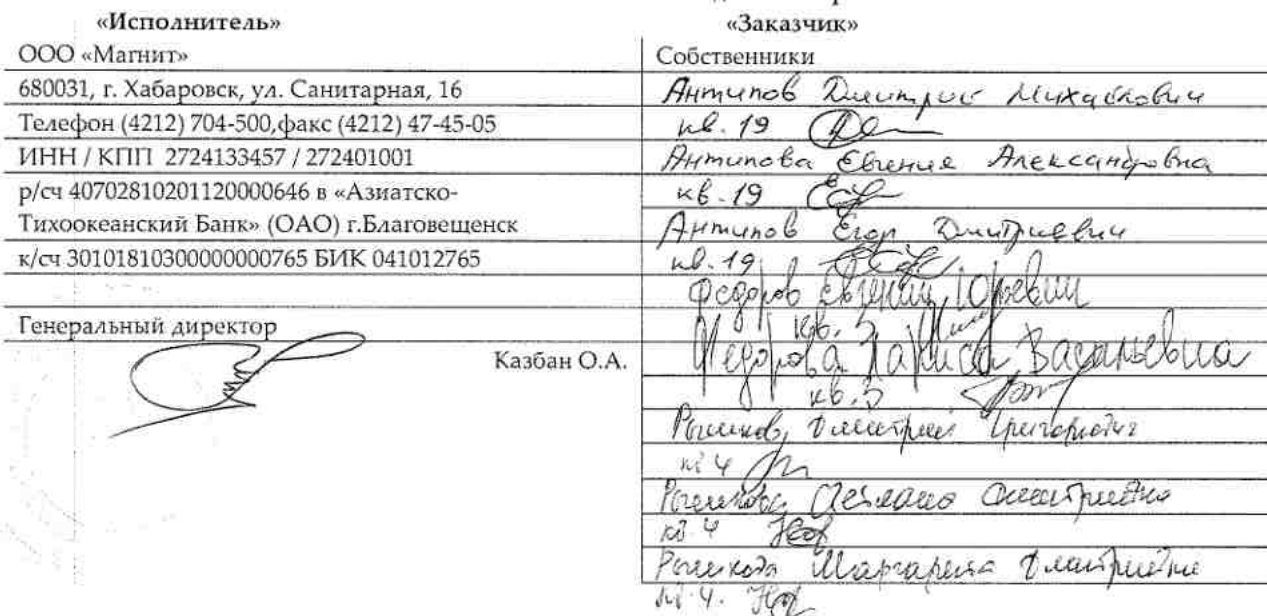 «Исполнитель»
ООО «Магнит»
680031, г. Хабаровск, ул. Санитарная, 16
Телефон (4212) 704-500,факс (4212) 47-45-05
ИНН / КПП 2724133457 / 272401001
р/сч 40702810201120000646 в «Азиатско-
Тихоокеанский Банк» (ОАО) г.Благовещенск
к/сч 30101810300000000765 БИК 041012765
Генеральный директор
Казбан О.А.
«Заказчик»
Собственники
Антипов Дмитрий Михайлович
кв. 19
Антипова Евгения Александровна
кв. 19
Антипов Егор Дмитриевич
кв. 19
Федоров Евгений Юрьевич
кв. 3
Федорова Лариса Васильевна
кв. 3
Дмитрий Григорьевич
кв 4
Дмитриевна
кв. 4
Маргарита Дмитриевна
кв. 4.